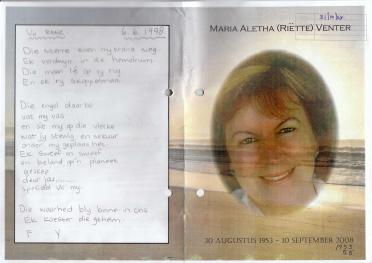 Vir Riëtte 6.6.1998
Die sterre
weg.
Ek verdwyn in die hemelruim
Die maan lê op sy rug
En ek ry skoppelmaai
Die engel daar bo
vat my vas
en sit my op die vlerke
wat sy stewig en sekuur
onder my geplaas het.
Ek sweef en sweef
en beland op 'n planeet
geskep
deur jou
spesiaal vir my.
Die waarheid bly binne-in ons
Ek koester die geheim.
F Y
MARIA ALETHA (RIËTTE) VENTER
30 AUGUSTUS 1953 - 10 SEPTEMBER 2008
1953
55